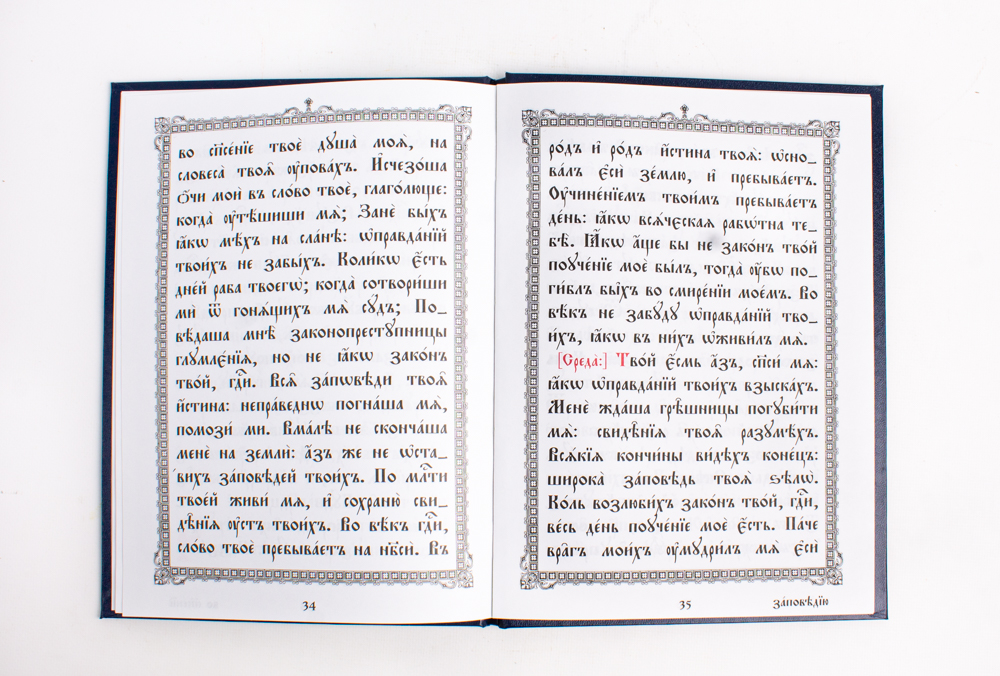 во сп҃се́нїе твоѐ дꙋша̀ моѧ̀, на
словеса̀ твоѧ̑ ᲂу҆пова́хъ. И҆счезо́ша
ѻ҆́чи моѝ въ сло́во твоѐ, глаго́люще:
когда̀ ᲂу҆тѣ́шиши мѧ̀; Занѐ бы́хъ
ꙗ҆́кѡ мѣ́хъ на сла́нѣ: ѡ҆правда́нїй
твои́хъ не забы́хъ. Коли́кѡ є҆́сть
дне́й раба̀ твоегѡ̀; когда̀ сотвори́ши
мѝ ѿ гонѧ́щихъ мѧ̀ сꙋ́дъ; По_
вѣ́даша мнѣ̀ законопрестꙋ́пницы
глꙋмлє́нїѧ, но не ꙗ҆́кѡ зако́нъ
тво́й, гдⷭ҇и. Всѧ̑ за́пѡвѣди твоѧ̑
и҆́стина: непра́веднѡ погна́ша мѧ̀,
помози́ ми. Вма́лѣ не сконча́ша
менѐ на землѝ: а҆́зъ же не ѡ҆ста́_
вихъ за́повѣдей твои́хъ. По млⷭ҇ти
твое́й живи́ мѧ, и҆ сохраню̀ сви_
дѣ́нїѧ ᲂу҆́стъ твои́хъ. Во вѣ́къ гдⷭ҇и,
сло́во твоѐ пребыва́етъ на нб҃сѝ. Въ
34
ро́дъ и҆ ро́дъ и҆́стина твоѧ̀: ѡ҆сно_
ва́лъ є҆сѝ зе́млю, и҆ пребыва́етъ.
Оу҆чине́нїемъ твои́мъ пребыва́етъ
де́нь: ꙗ҆́кѡ всѧ́чєскаѧ рабѡ́тна те_
бѣ̀. Ꙗ҆́кѡ а҆́ще бы не зако́нъ тво́й
поꙋче́нїе моѐ бы́лъ, тогда̀ ᲂу҆́бѡ по_
ги́блъ бы́хъ во смире́нїи мое́мъ. Во
вѣ́къ не забꙋ́дꙋ ѡ҆правда́нїй тво_
и́хъ, ꙗ҆́кѡ въ ни́хъ ѡ҆живи́лъ мѧ̀.
[Среда̀:] Тво́й є҆́смь а҆́зъ, сп҃си́ мѧ:
ꙗ҆́кѡ ѡ҆правда́нїй твои́хъ взыска́хъ.
Менѐ жда́ша грѣ̑шницы погꙋби́ти
мѧ̀: свидѣ̑нїѧ твоѧ̑ разꙋмѣ́хъ.
Всѧ́кїѧ кончи́ны ви́дѣхъ коне́цъ:
широка̀ за́повѣдь твоѧ̀ ѕѣлѡ̀.
Ко́ль возлюби́хъ зако́нъ тво́й, гдⷭ҇и,
ве́сь де́нь поꙋче́нїе моѐ є҆́сть. Па́че
вра̑гъ мои́хъ ᲂу҆мꙋдри́лъ мѧ̀ є҆сѝ
35
за́повѣдїю